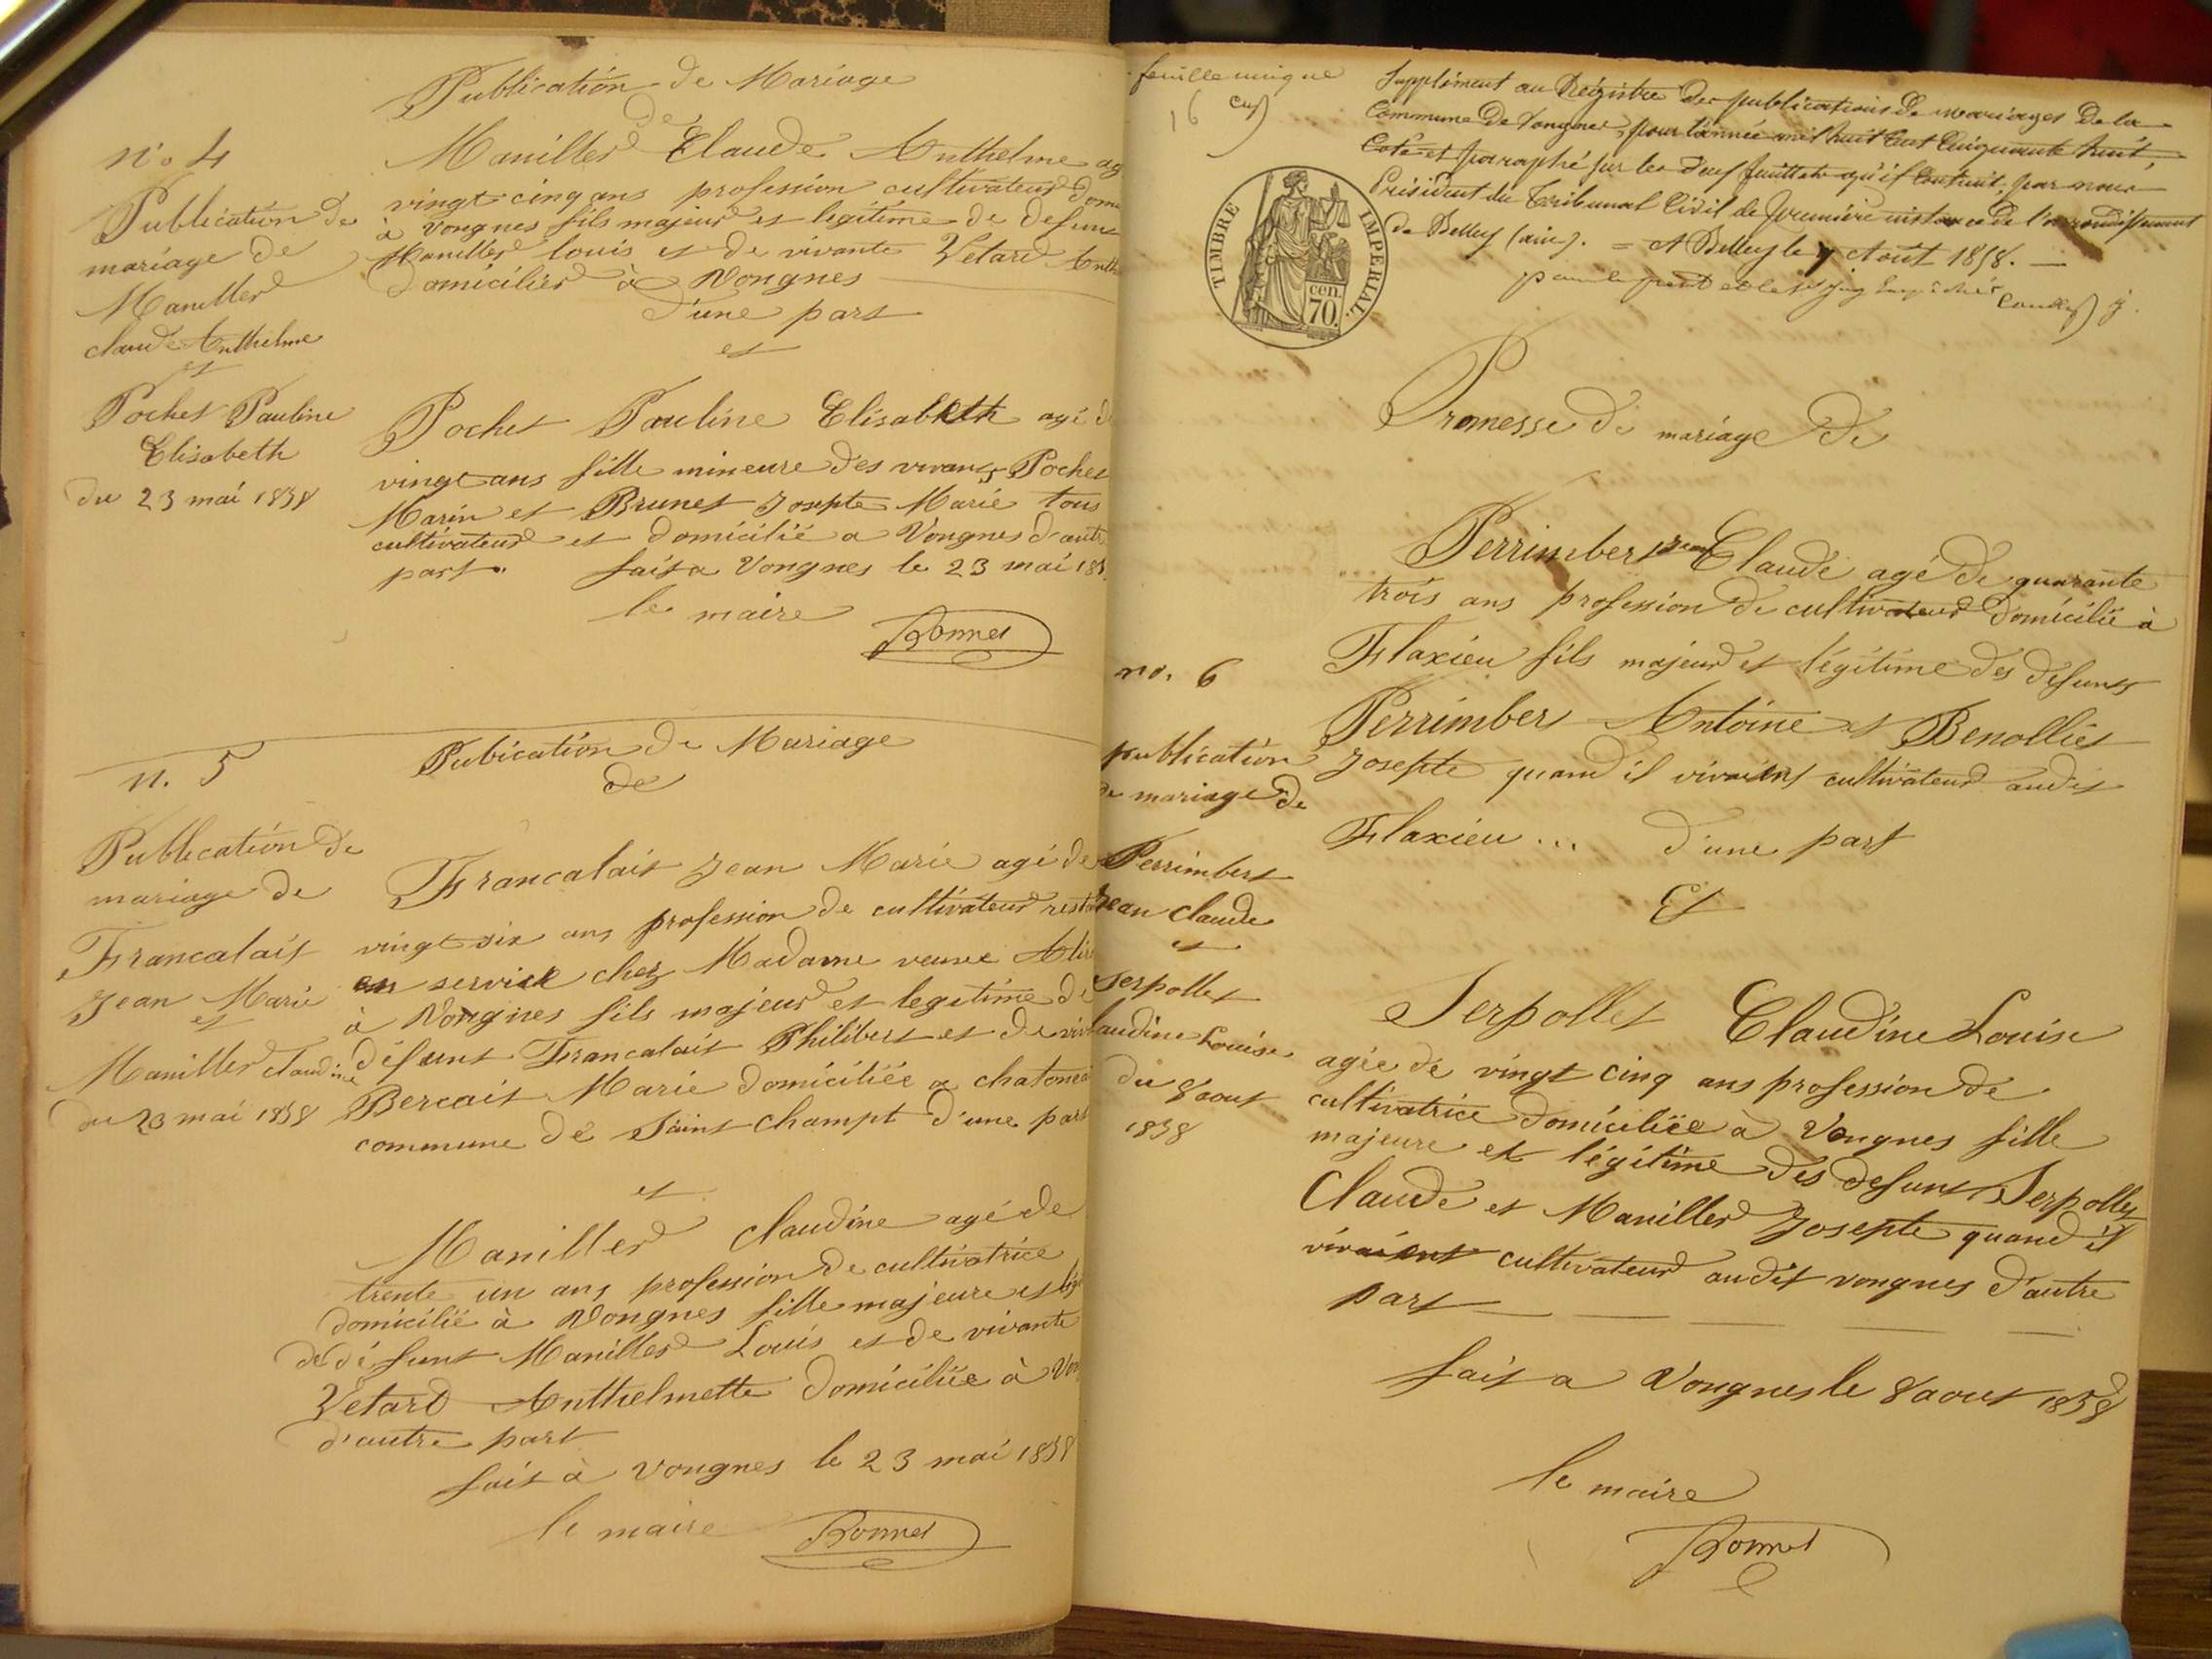 Publication de Mariage
de
n°. 4
Maniller Claude Anthelme ag
vingt cinq ans profession cultivateur domi
à Vongnes fils majeur et legitime de defunt
Maniller louis et de vivante Vetard Anth
domicilier à Vongnes
d'une part
et
Publication de
mariage de
Maniller
claude Anthelme
et
Pochet Pauline
Elisabeth
du 23 mai 1858
Pochet Pauline Elisabeth agé d
vingt ans fille mineure des vivants Pochet
Marin et Brunet Josepte Marie tous
cultivateur et domicilié a Vongnes d'autr
part. fait a Vongnes le 23 mai 185
le maire
Bonnet
n. 5
Pubication de Mariage
de
Publication de
mariage de
Francalait
Jean Marie
et
Maniller Claudine
du 23 mai 1858
Francalait Jean Marie agé de
vingt six ans profession de cultivateur rest
en service chez Madame veuve
à Vongnes fils majeur et legitime de
défunt Francalait Philibert et de viv
Bercait Marie domiciliée a chatone
commune de Saint champt d'une part
et
Maniller claudine agé de
trente un ans profession de cultivatrice
domicilié à Vongnes fille majeure et lég
de défunt Maniller Louis et de vivante
Vetard Anthelmette domiciliée à Von
d'autre part
fait à Vongnes le 23 mai 1858
le maire
Bonnet
feuille unique
Supplément au Régistre des publications de mariages de la
Commune de Vongnes, pour l'année mil huit cent cinquante huit,
Coté et paraphé sur les deux feuillets qu'il contient, par nous
Président du Tribunal Civil de première instance de l'arrondissement
de Belley (ain). = A Belley le 7 Août 1858.
TIMBRE IMPERIAL.
cen.
70.
Promesse de mariage de
Perrimbert Jean Claude agé de quarante
trois ans profession de cultivateur domicilié à
Flaxieu fils majeur et légitime des defunts
Perrimbert Antoine et Benollict
Josepte quand il vivaient cultivateur audit
Flaxieu ... d'une part
Et
no. 6
publication
de mariage de
Perrimbert
Jean claude
et
Serpollet
laudine Louise
du 8 aout
1858
Serpollet Claudine Louise
agée de vingt cinq ans profession de
cultivatrice domiciliée à Vongnes fille
majeure et légitime des defunt Serpollet
Claude et Maniller Josepte quand il
vivaient cultivateur audit vongnes d'autre
part
fait a Vongnes le 8 aout 1858
le maire
Bonnet